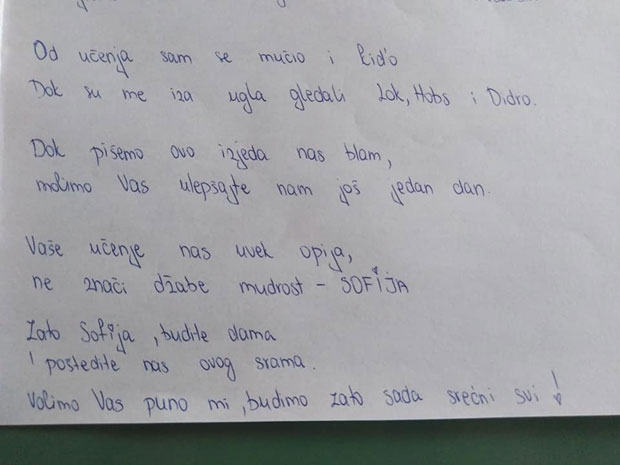 Od učenja sam se mučio i rid'o
Dok su me iza ugla gledali Lok, Hobs i Didro.
Dok pišemo ovo izjeda nas blam,
molimo Vas ulepšajte nam još jedan dan.
Vaše učenje nas uvek opija,
ne znači džabe mudrost - SOFIJA
Zato Sofija, budite dama
i poštedite nas ovog srama.
Volimo Vas puno mi, budimo zato sada srećni svi!